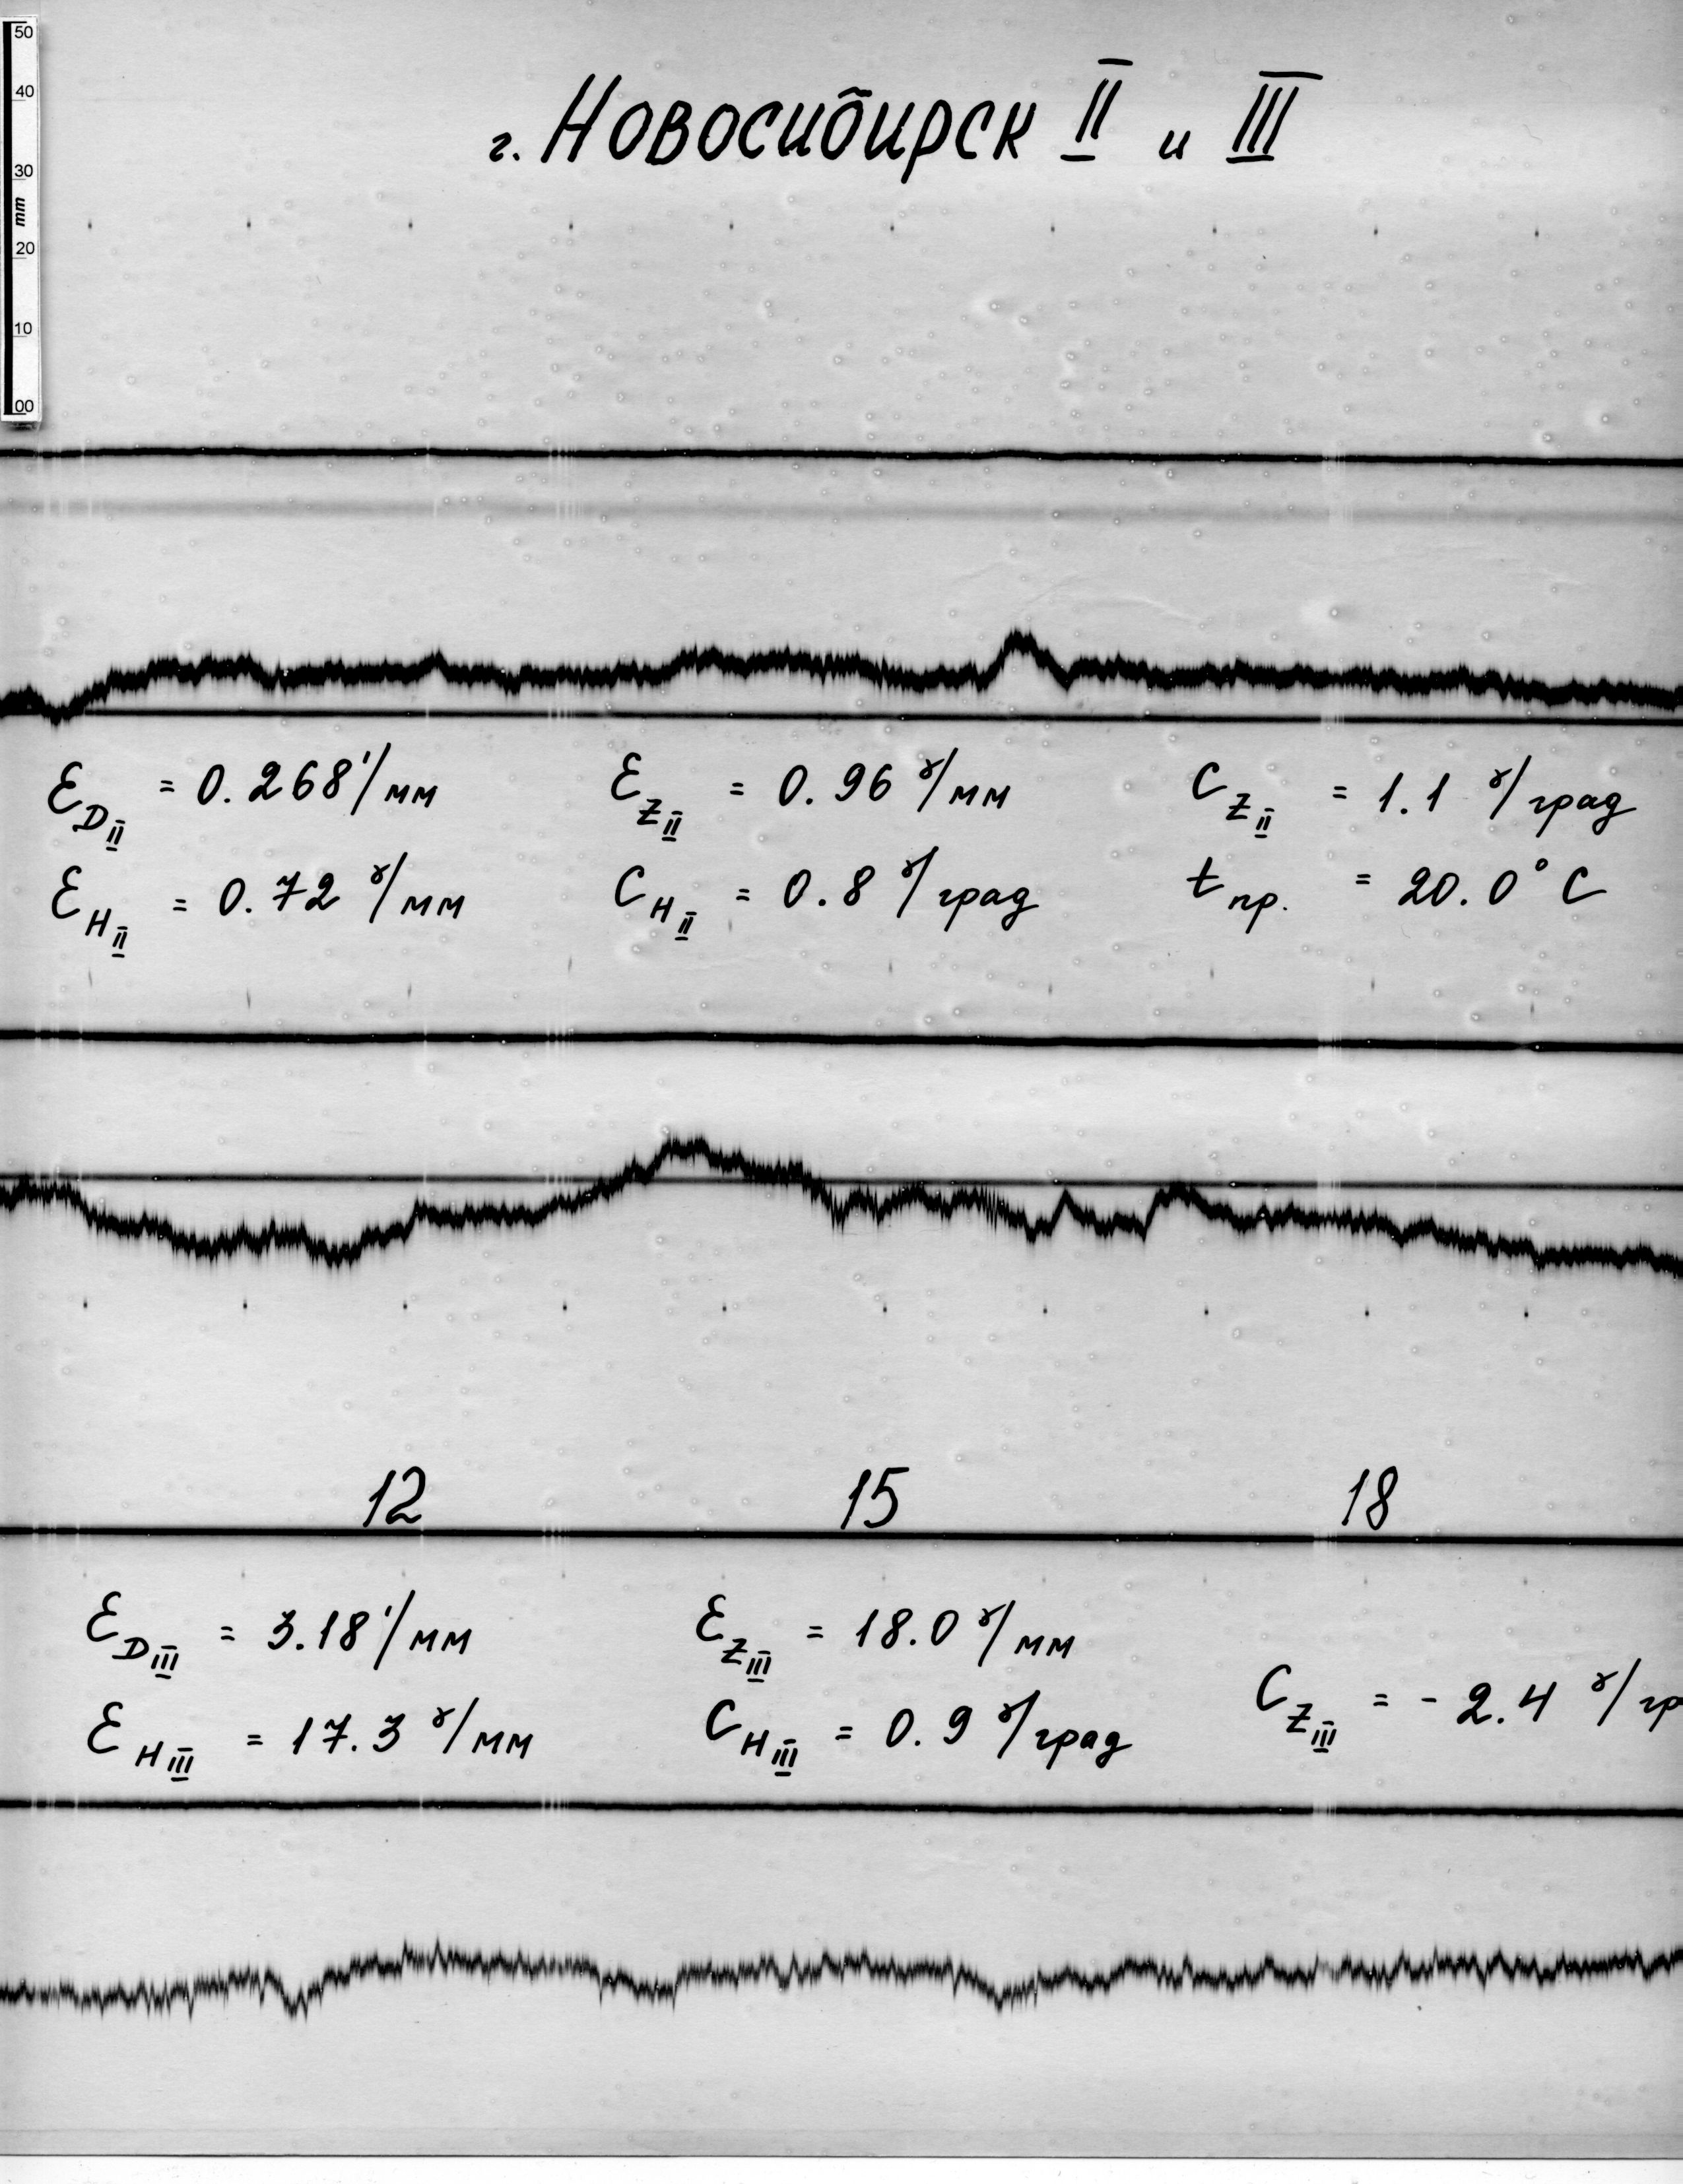 50
40
30
mm
20
10
00
г. Новосибирск II и III
ε D II = 0.268'/мм ε Z II = 0.96 γ/мм C Z II = 1.1 γ/град
ε H II = 0.72 γ/мм C H II = 0.8 γ/град t пр. = 20.0° C
12 15 18
ε D III = 3.18'/мм ε Z III = 18.0 γ/мм
C Z III = - 2.4 γ/гр
ε H III = 17.3 γ/мм C H III = 0.9 γ/град